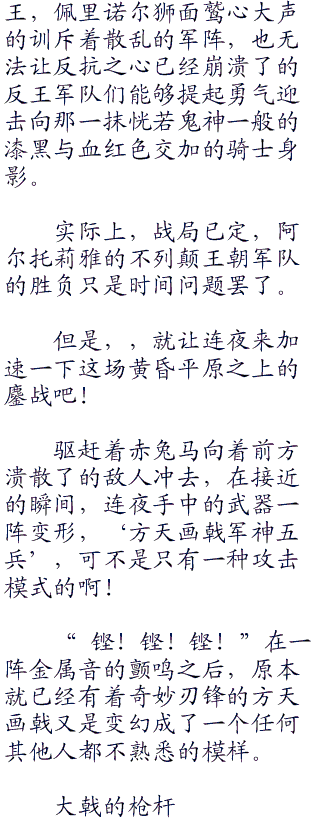 王，佩里诺尔狮面鹫心大声
的训斥着散乱的军阵，也无
法让反抗之心已经崩溃了的
反王军队们能够提起勇气迎
击向那一抹恍若鬼神一般的
漆黑与血红色交加的骑士身
影。
实际上，战局已定，阿
尔托莉雅的不列颠王朝军队
的胜负只是时间问题罢了。
但是，，就让连夜来加
速一下这场黄昏平原之上的
鏖战吧！
驱赶着赤兔马向着前方
溃散了的敌人冲去，在接近
的瞬间，连夜手中的武器一
阵变形，‘方天画戟军神五
兵’，可不是只有一种攻击
模式的啊！
“ 铿！铿！铿！”在一
阵金属音的颤鸣之后，原本
就已经有着奇妙刃锋的方天
画戟又是变幻成了一个任何
其他人都不熟悉的模样。
大戟的枪杆